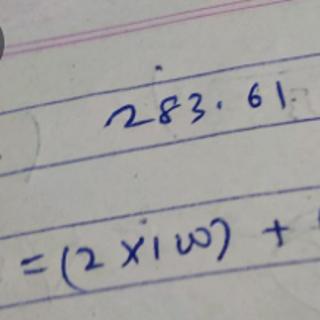 283.61
=(2×100)+